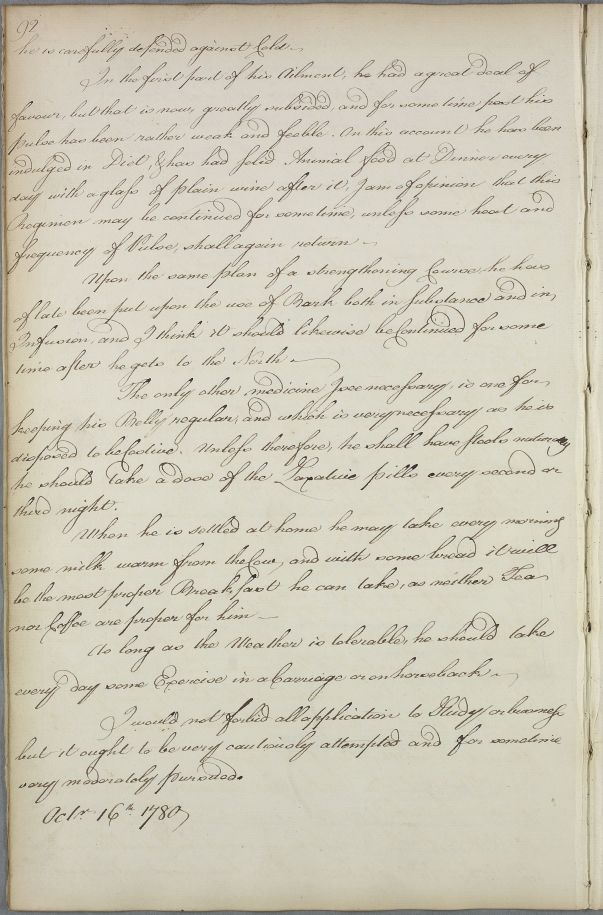 92
he is carefully defended against Cold.
In the first part of his Ailment, he had a great deal of
favour, but that is now, greatly subsided, and for some time past his
pulse has been rather weak and feeble. On this account he has been
indulged in Diet, & has had solid Animal food at Dinner every
day with a glass of plain wine after it, I am of opinion that this
Regimen may be continued for some time, unless some heat and
frequency of Pulse, shall again return —
Upon the same plan of a strengthening Course he has
of late been put upon the use of Bark both in Substance and in
Infusion, and I think it should likewise be Continued for some
time after he gets to the North —
The only other medicine I see necessary, is one for
keeping his Belly regular, and which is very necessary as he is
disposed to be Costive. Unless therefore, he shall have stools naturaly
he should take a dose of the Laxative pills every second or
third night.
When he is settled at home he may take every morning
some milk warm from the Cow, and with some bread it will
be the most proper Breakfast he can take, as neither Tea
nor Coffee are proper for him —
So long as the Weather is tolerable, he should take
every day some Exercise in a Carriage or on horseback —
I would not forbid all application to Study or business
but it ought to be very cautiously attempted and for sometime
very moderately pursued.
Octr. 16th 1780